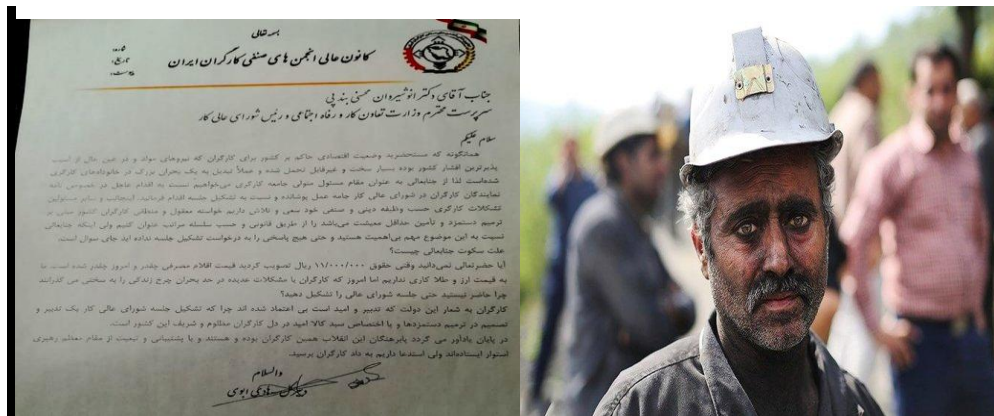 بسمه تعالی
کانون عالی انجمن های صنفی کارگران ایران
شماره:
تاریخ:
پیوست:
جناب آقای دکتر انوشیروان محسنی بند پی
سرپرست محترم وزارت تعاون کار و رفاه اجتماعی و رئیس شورای عالی کار
سلام علیکم
همانگونه که مستحضرید وضعیت اقتصادی حاکم بر کشور برای کارگران که نیروهای مولد و در عین حال از آسیب
پذیرترین اقشار کشور بوده بسیار سخت و غیرقابل تحمل شده و عملاً تبدیل به یک بحران بزرگ در خانواده‌های کارگری
شده‌است لذا از جنابعالی به عنوان مقام مسئول متولی جامعه کارگری می‌خواهیم نسبت به اقدام عاجل در خصوص نامه
نمایندگان کارگران در شورای عالی کار جامه عمل پوشانده و نسبت به تشکیل جلسه اقدام فرمائید. اینجانب و سایر مسئولین
تشکلات کارگری حسب وظیفه دینی و صنفی خود سعی و تلاش داریم خواسته معقول و منطقی کارگران کشور مبنی بر
ترمیم دستمزد و تأمین حداقل معیشت می‌باشد را از طریق قانونی و حسب سلسله مراتب عنوان کنیم ولی اینکه جنابعالی
نسبت به این موضوع مهم بی‌اهمیت هستید و حتی هیچ پاسخی را به درخواست تشکیل جلسه نداده اید جای سوال است.
علت سکوت جنابعالی چیست؟
آیا حضرتعالی نمی‌دانید وقتی حقوق ۱۱/۰۰۰/۰۰۰ ریال تصویب کردید قیمت اقلام مصرفی چقدر و امروز چقدر شده است ما
به قیمت ارز و طلا کاری نداریم اما امروز که کارگران با مشکلات عدیده در حد بحران چرخ زندگی را به سختی می گذرانند
چرا حاضر نیستید حتی جلسه شورای عالی را تشکیل دهید؟
کارگران به شعار این دولت که تدبیر و امید است بی اعتماد شده اند چرا که تشکیل جلسه شورای عالی کار یک تدبیر و
تصمیم در ترمیم دستمزدها و یا اختصاص سبد کالا امید در دل کارگران مظلوم و شریف این کشور است.
در پایان یادآور می گردد پابرهنگان این انقلاب همین کارگران بوده و هستند و با پشتیبانی و تبعیت از مقام معظم رهبری
استوار ایستاده‌اند ولی استدعا داریم به داد کارگران برسید.
والسلام
هادی ابوی